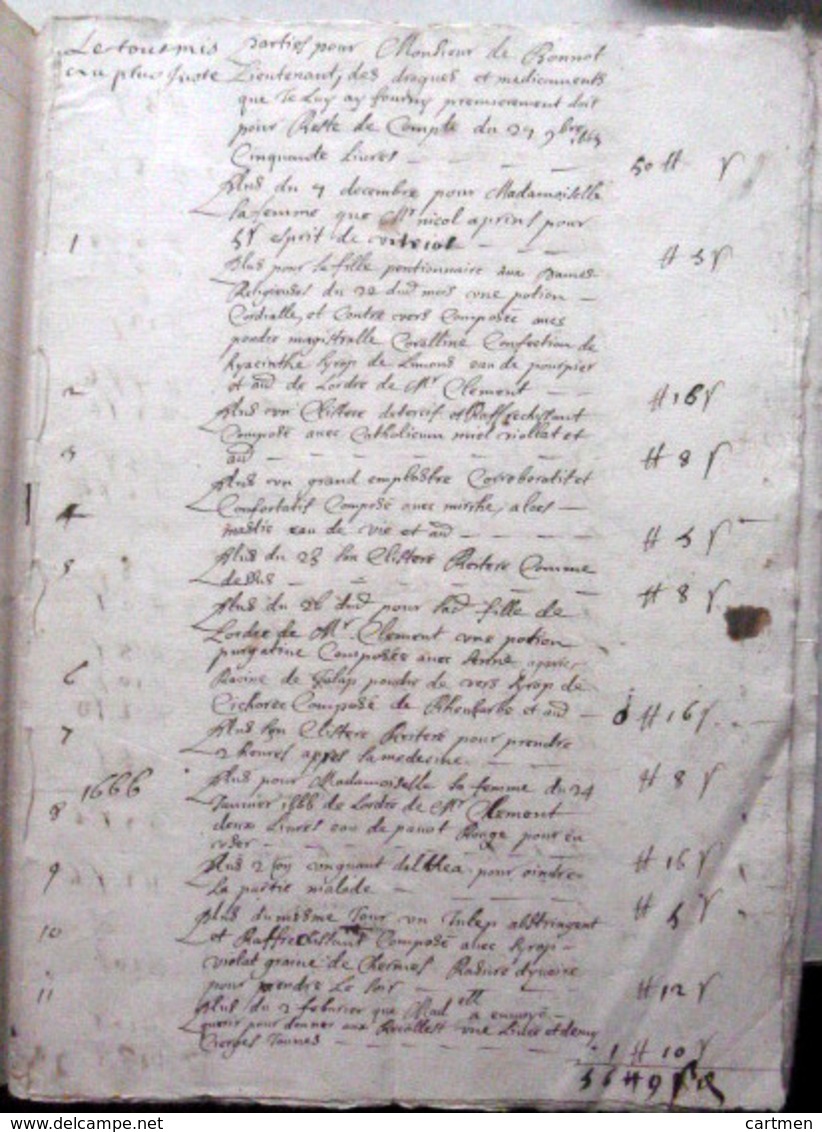 Le tout mis
au plus juste
Parties pour Monsieur de Bonnot
Lieutenant, des drogues et medicaments
que Je Luy ay fourny premierement doit
pour Reste de Compte du 27 9bre 1665
Cinquante Livres 50 ##
Plus du 7 decembre pour Madamoiselle
sa femme que Mr nicol a prins pour
5s esprit de vitriol
1 ## 5 s
Plus pour sa fille pentionnaire aux Dames
Religieuses du 22 dud mois une potion
Cordialle, et Contre vers Composée avec
poudre magistralle Coralline Confection de
hyacinthe syrop de Limons eau de pourpier
et aud de Lordre de Mr Clement
2 ## 16 s
Plus un Clistere detersif et Raffrechissant
Composé avec Catholicum miel violat et
aud
3 ## 8 s
Plus un grand emplastre Corroboratif et
Confortatif Composé avec mirrhe, aloes
mastic eau de vie et aud
4 ## 5 s
Plus du 23 un Clistere Reiteré Comme
dessus
5 ## 8 s
Plus du 26 dud pour lad fille de
Lordre de Mr Clement une potion
purgative Composée avec
Racine de Jalap poudre de vers syrop de
Cichorée Composé de Rheubarbe et aud
6 ## 16 s
Plus un Clistere Reiteré pour prendre
2 heures apres la medecine
7 ## 8 s
1666
Plus pour Madamoiselle sa femme du 24
Janvier 1666 de Lordre de Mr Clement
deux Livres eau de pavot Rouge pour en
user
8 ## 16 s
Plus 2 onguant dalthea pour oindre
la partie malade
9 ## 5 s
Plus du mesme Jour un Julep abstringent
et Raffrechissant Composé avec syrop
violat graine de Chermes Radure dyvoire
pour prendre Le soir
10 ## 12 s
Plus du 2 febvrier que Madlle a envoyé
querir pour donner aux une Livre et demy
Cierges Jaunes
11 1 ## 10 s
56 ## 9 s
cartmen